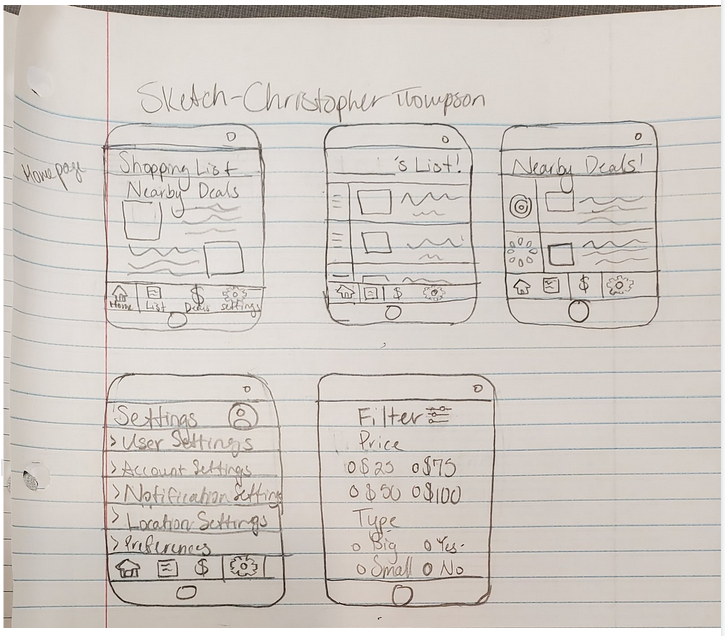 Sketch-Christopher Thompson
Home page
Shopping List
Nearby Deals
Home List Deals settings
's List!
$
Nearby Deals!
$
Settings
> User Settings
> Account Settings
> Notification Setting
> Location Settings
> Preferences
$
Filter
Price
$25 $75
$50 $100
Type
Big Yes
Small No